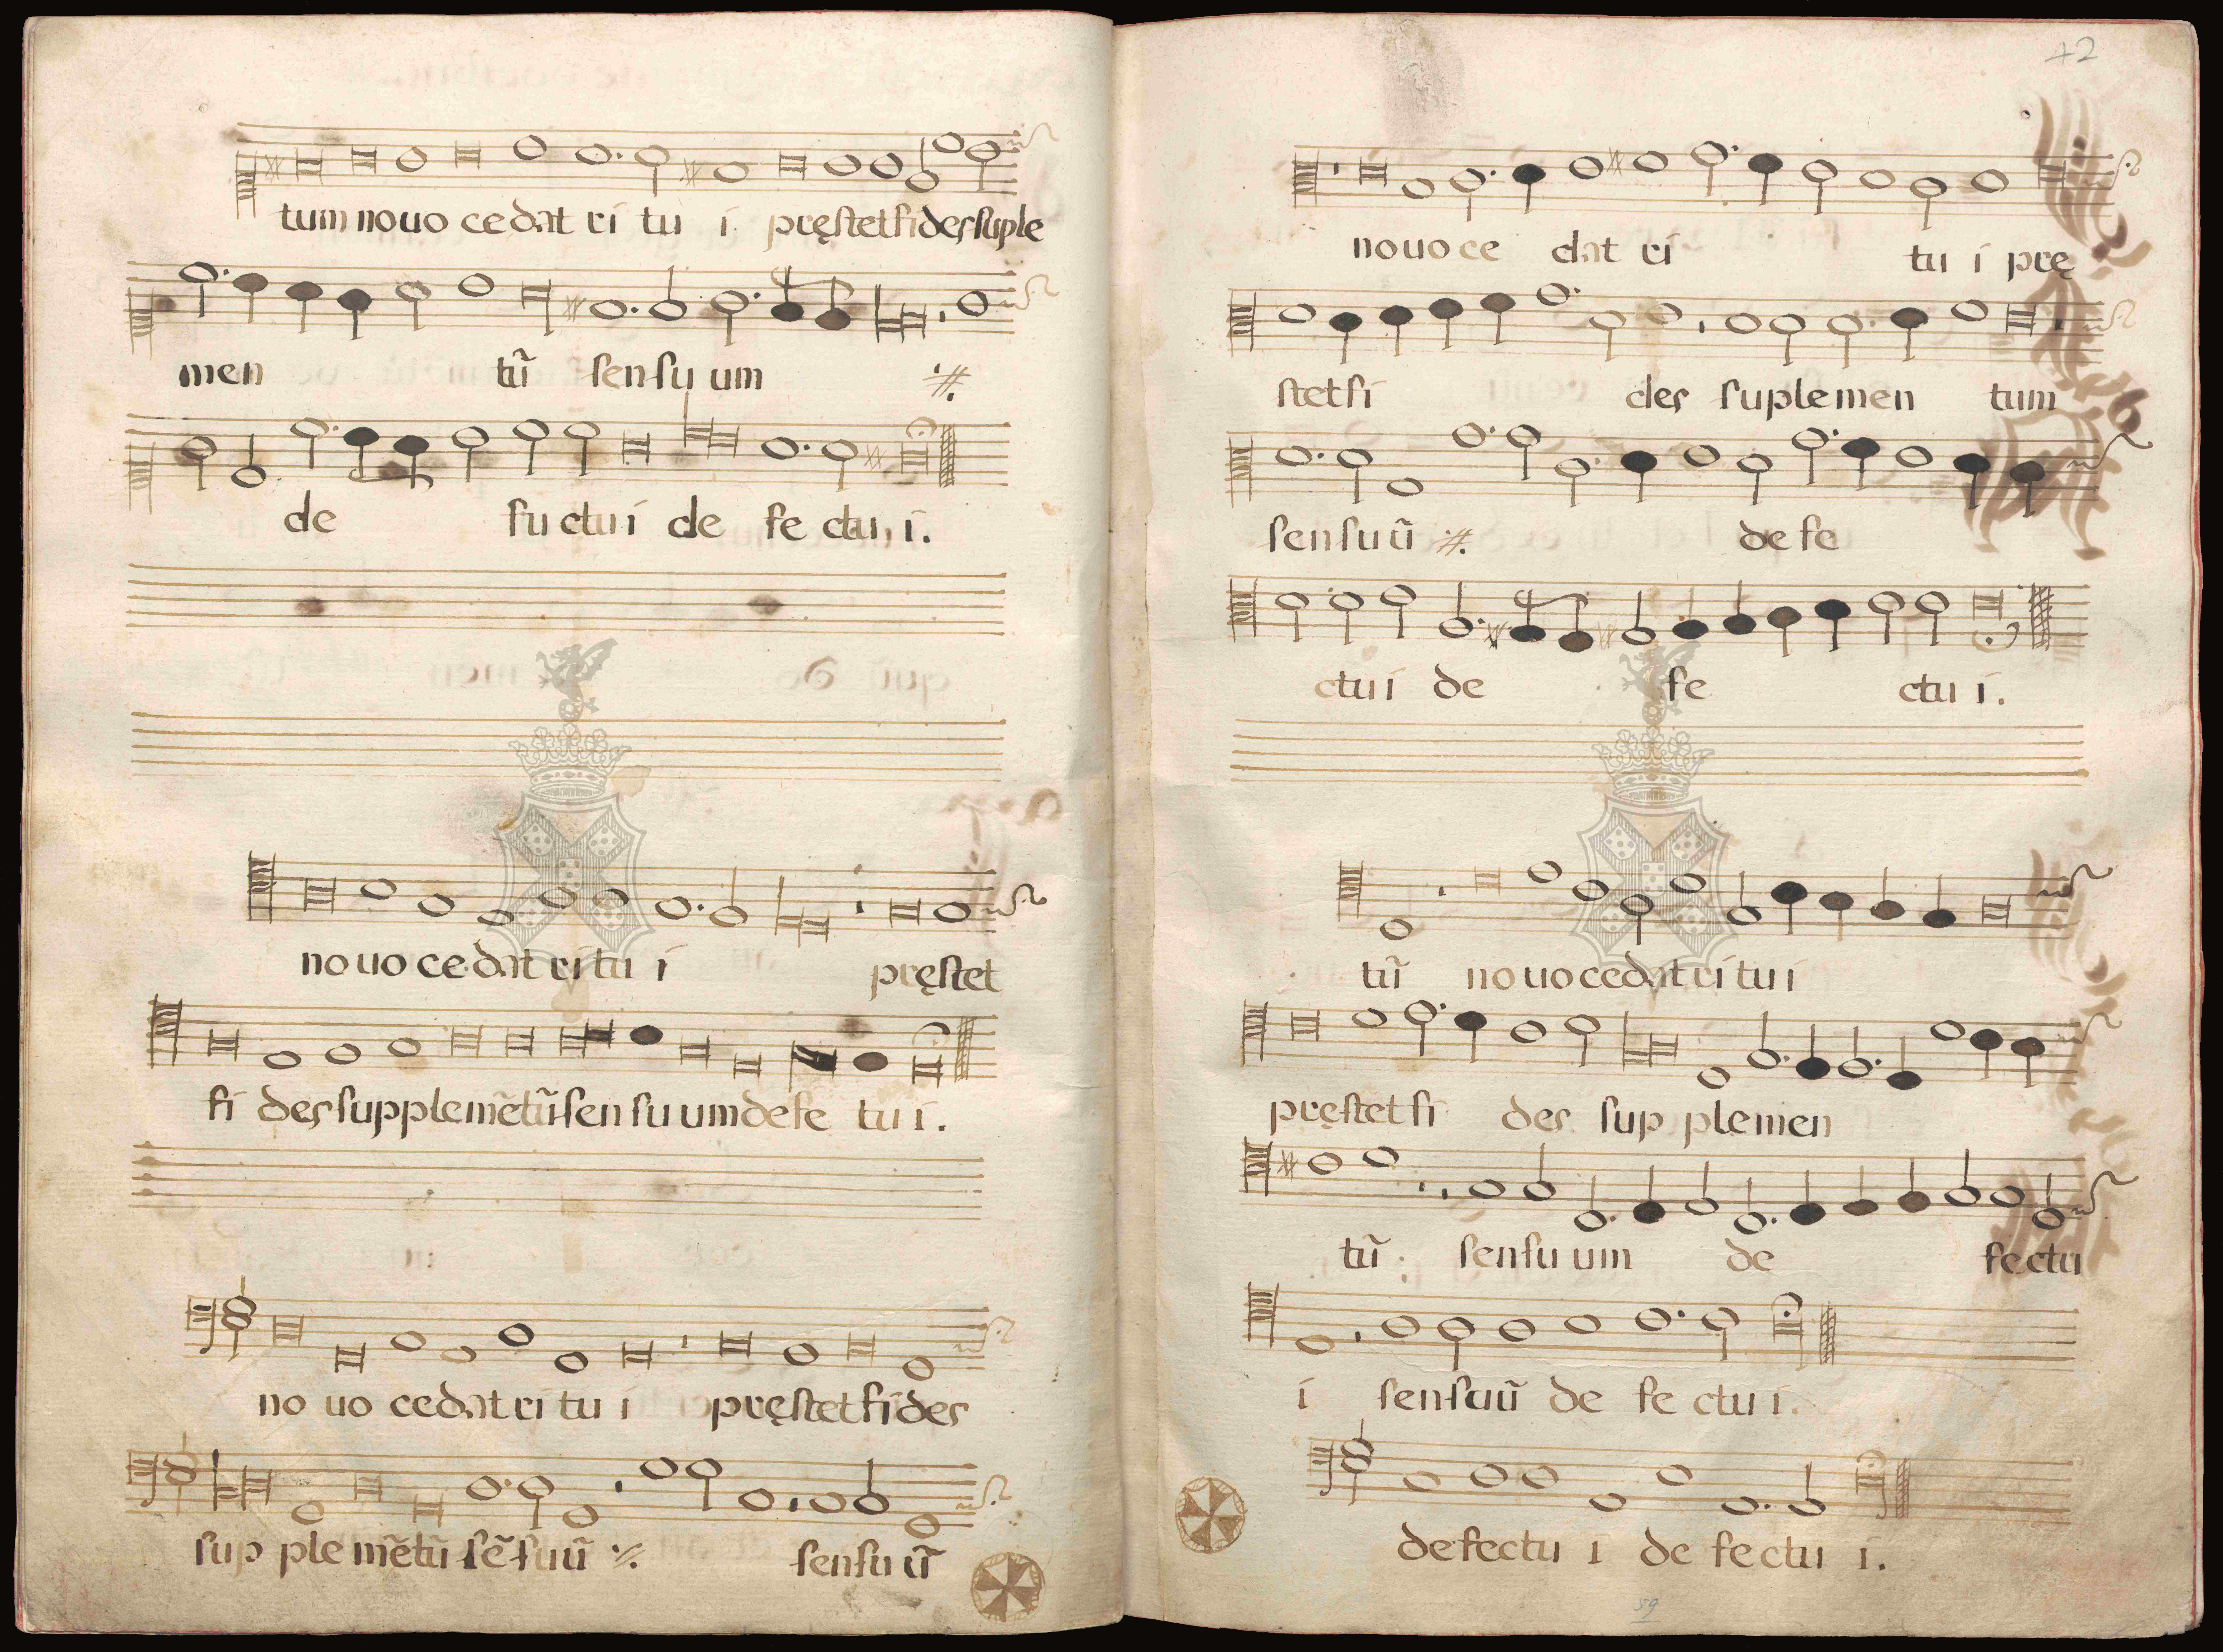 tum nouo cedat ri tu i pręstet fides suple
men tũ sensu um ·//.
de fu ctu i de fe ctu i.
nouo cedat ri tu i pręstet
fi des supplemẽtũ sen su um defe tu i.
no uo cedat ri tu i pręstet fides
sup ple mẽtũ sẽ suũ ·//. sensu ũ
42
nouo ce dat ri tu i prę
stet fi des suplemen tum
sensuũ ·//. defe
ctu i de fe ctu i.
tũ nouo cedat ri tu i
pręstet fi des sup plemen
tũ sensu um de fectu
i sensuũ de fe ctu i.
defectu i de fectu i.
59